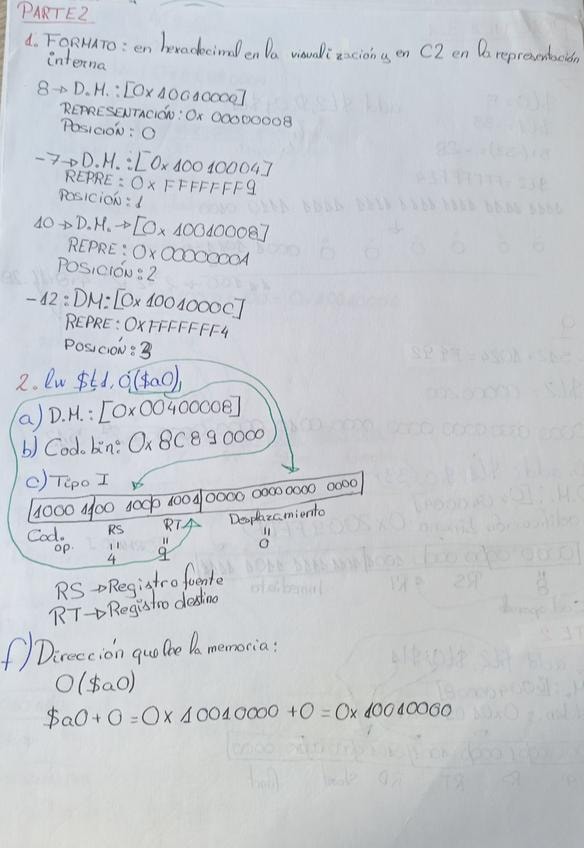 PARTE 2
1. FORMATO: en hexadecimal en la visualización y en C2 en la representación
interna
8 → D.M.: [0x10010000]
REPRESENTACIÓN: 0x 00000008
POSICIÓN: 0
-7 → D.M.: [0x10010004]
REPRE: 0x FFFFFFF9
POSICIÓN: 1
10 → D.M. → [0x 10010008]
REPRE: 0x0000000A
POSICIÓN: 2
-12: DM: [0x1001000C]
REPRE: 0xFFFFFFF4
POSICIÓN: 3
2. lw $t1, 0($a0)
a) D.M.: [0x00400008]
b) Cod. bin: 0x 8C890000
c) Tipo I
1000 1100 1000 1001 0000 0000 0000 0000
Cod. op. RS RT Desplazamiento
= = =
4 9 0
RS → Registro fuente
RT → Registro destino
f) Dirección que lee la memoria:
0($a0)
$a0 + 0 = 0x 10010000 + 0 = 0x 10010000